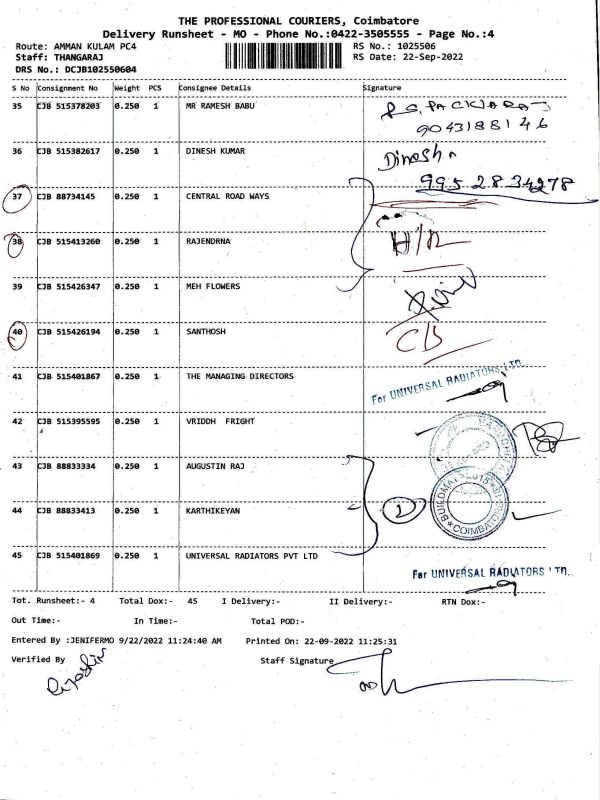 THE PROFESSIONAL COURIERS, Coimbatore
Delivery Runsheet - MO - Phone No.:0422-3505555 - Page No.:4
Route: AMMAN KULAM PC4 RS No.: 1025506
Staff: THANGARAJ RS Date: 22-Sep-2022
DRS No.: DCJB102550604
S No Consignment No Weight PCS Consignee Details Signature
35 CJB 515378203 0.250 1 MR RAMESH BABU
9043188146
36 CJB 515382617 0.250 1 DINESH KUMAR Dinesh
9952834278
37 CJB 88734145 0.250 1 CENTRAL ROAD WAYS
38 CJB 515413260 0.250 1 RAJENDRNA
39 CJB 515426347 0.250 1 MEH FLOWERS
40 CJB 515426194 0.250 1 SANTHOSH
41 CJB 515401867 0.250 1 THE MANAGING DIRECTORS For UNIVERSAL RADIATORS LTD
42 CJB 515395595 0.250 1 VRIDDH FRIGHT
43 CJB 88833334 0.250 1 AUGUSTIN RAJ
44 CJB 88833413 0.250 1 KARTHIKEYAN
COIMBATORE
45 CJB 515401869 0.250 1 UNIVERSAL RADIATORS PVT LTD For UNIVERSAL RADIATORS LTD.
Tot. Runsheet:- 4 Total Dox:- 45 I Delivery:- II Delivery:- RTN Dox:-
Out Time:- In Time:- Total POD:-
Entered By :JENIFERMO 9/22/2022 11:24:40 AM Printed On: 22-09-2022 11:25:31
Verified By Staff Signature